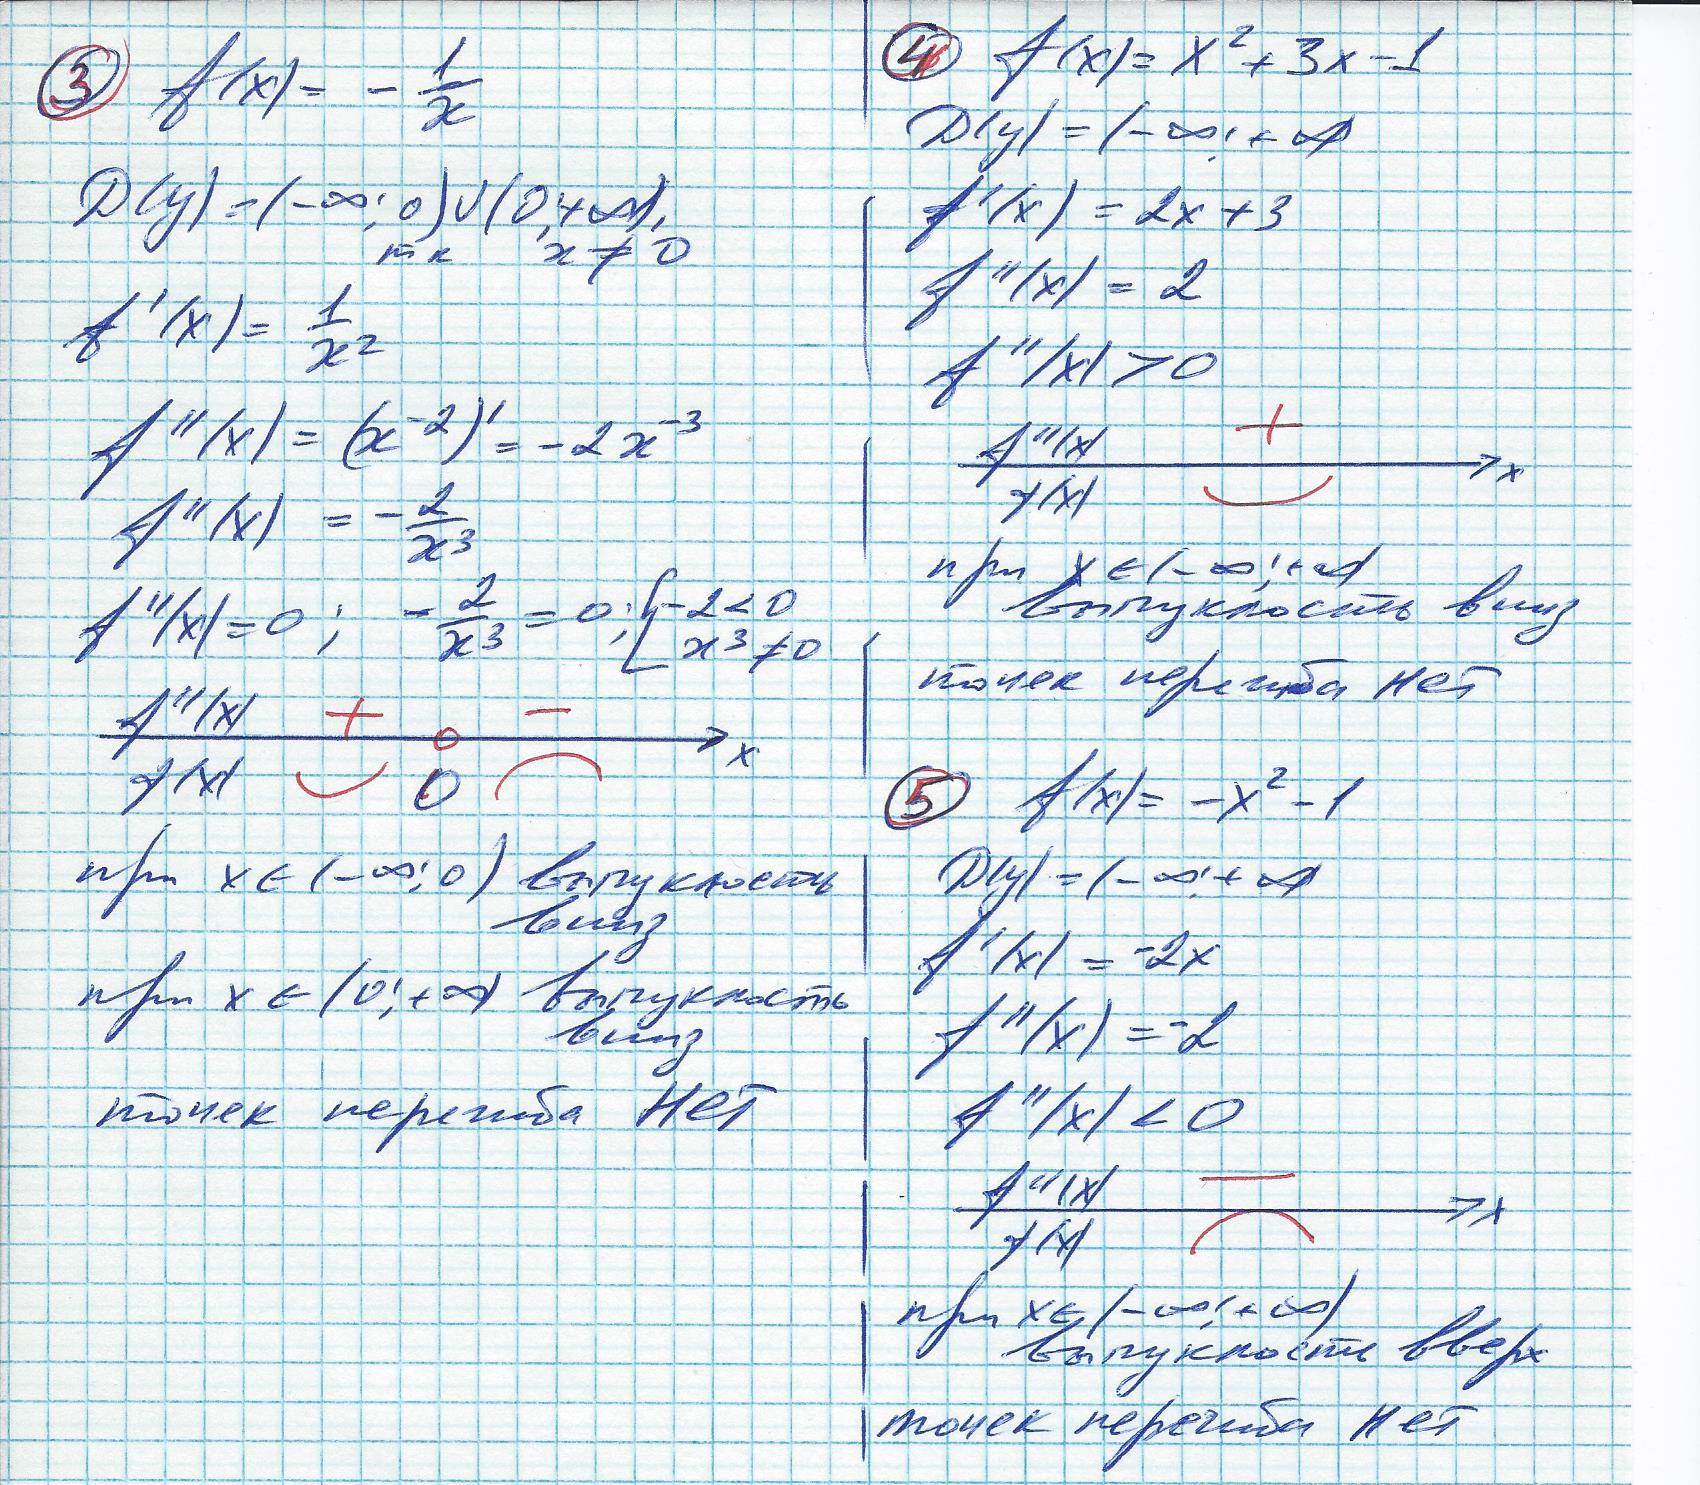 3 f(x) = - 1/x
D(y) = (-∞; 0) ∪ (0; +∞),
тк x ≠ 0
f'(x) = 1/x²
f''(x) = (x⁻²)' = -2x⁻³
f''(x) = - 2/x³
f''(x) = 0; - 2/x³ = 0; [-2 < 0
x³ ≠ 0
f''(x) + - x
f(x) 0
при x ∈ (-∞; 0) выпуклость
вниз
при x ∈ (0; +∞) выпуклость
вниз
точек перегиба нет
4 f(x) = x² + 3x - 1
D(y) = (-∞; +∞)
f'(x) = 2x + 3
f''(x) = 2
f''(x) > 0
f''(x) + x
f(x)
при x ∈ (-∞; +∞)
выпуклость вниз
точек перегиба нет
5 f(x) = -x² - 1
D(y) = (-∞; +∞)
f'(x) = -2x
f''(x) = -2
f''(x) < 0
f''(x) - x
f(x)
при x ∈ (-∞; +∞)
выпуклость вверх
точек перегиба нет